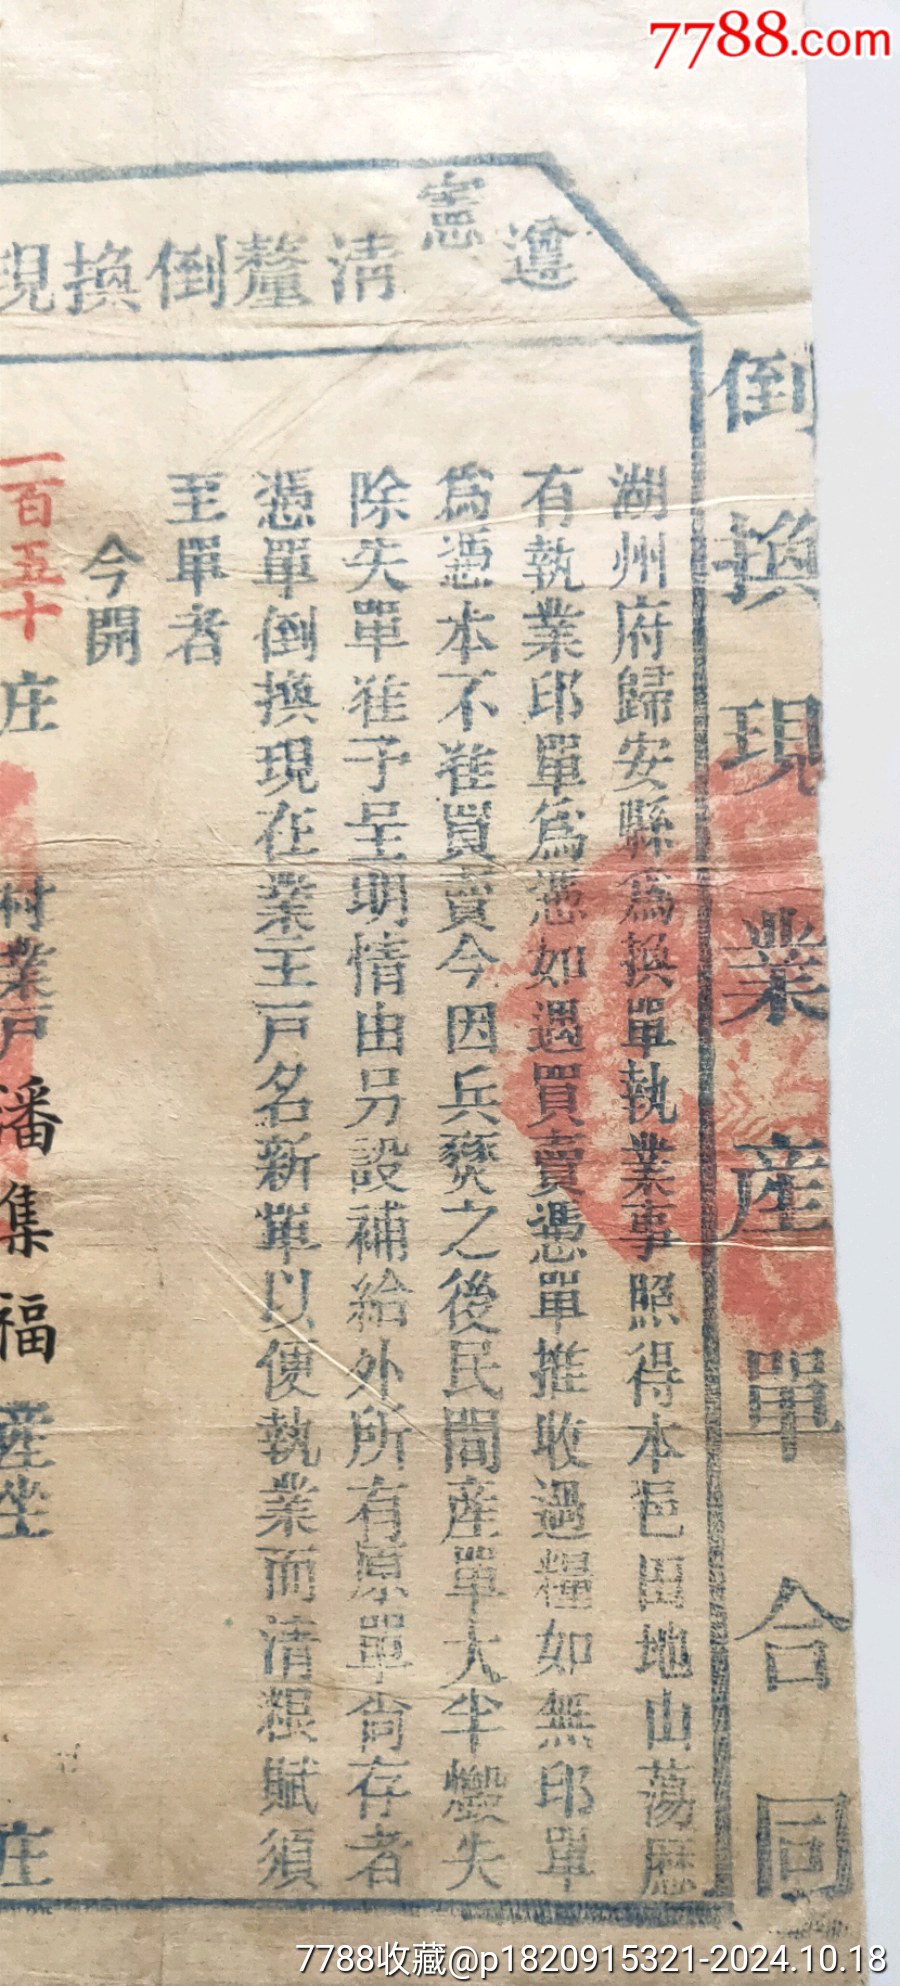 7788.com
倒換現業產單合同
遵
憲
清釐倒換現
湖州府歸安縣為換單執業事照得本邑田地山蕩歷
有執業印單爲憑如遇買賣憑單推收過糧如無印單
爲憑本不准買賣今因兵燹之後民間產單大半燬失
除失單准予呈明情由另設補給外所有原單尙存者
憑單倒換現在業主戶名新單以便執業而清糧賦須
至單者
今開
一百五十庄
村業戶潘集福產坐
庄
7788收藏@p1820915321-2024.10.18